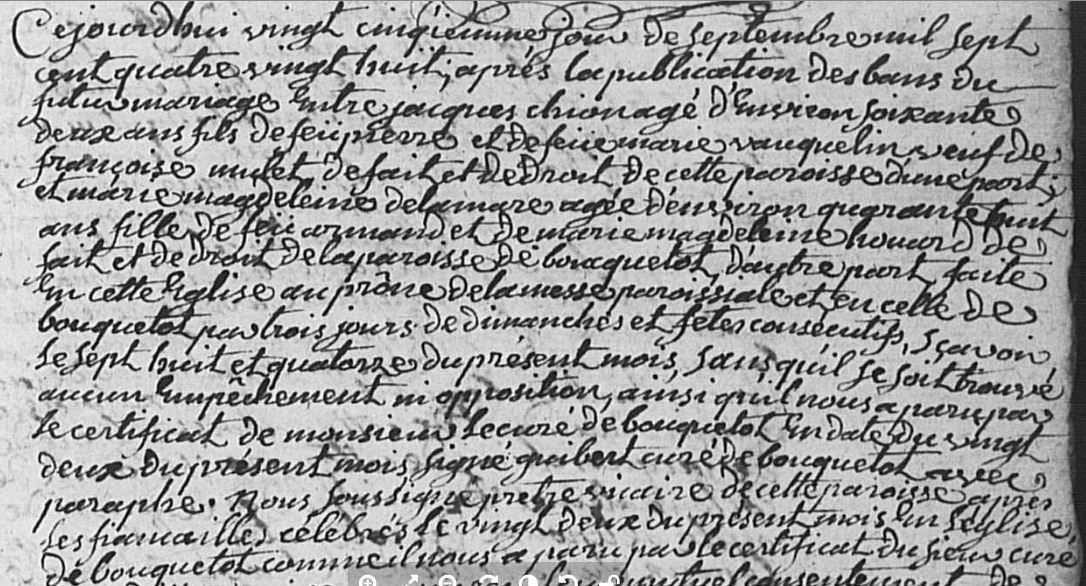 Cejourdhui vingt cinqieumne jour de septembre mil sept
cent quatre vingt huit, après la publication des bans du
futur mariage Entre jacques chion agé d'Environ soixante
deux ans fils de feü pierre et de feüe marie vauquelin veuf de
françoise mulet, de fait et de Droit de cette paroisse d'une part;
et marie magdeleine delamare agée d'environ quarante huit
ans fille de feü armand et de marie magdeleine houard de
fait et de Droit de la paroisse de bouquetot, d'autre part, faite
En cette Eglise au prône de la messe paroissiale et en celle de
bouquetot par trois jours de dimanches et fêtes consecutifs, sçavoir
le sept huit et quatorze du présent mois, sans qu'il se soit trouvé
aucun Empêchement ni opposition, ainsi qu'il nous a paru par
le certificat de monsieur le curé de bouquetot En date du vingt
deux du présent mois signé quibert curé de bouquetot avec
paraphe. Nous soussigné prêtre vicaire de cette paroisse après
les fiancailles célébrés le vingt deux du présent mois En l'église
de bouquetot comme il nous a paru par le certificat du sieur curé
mutuel consentement de